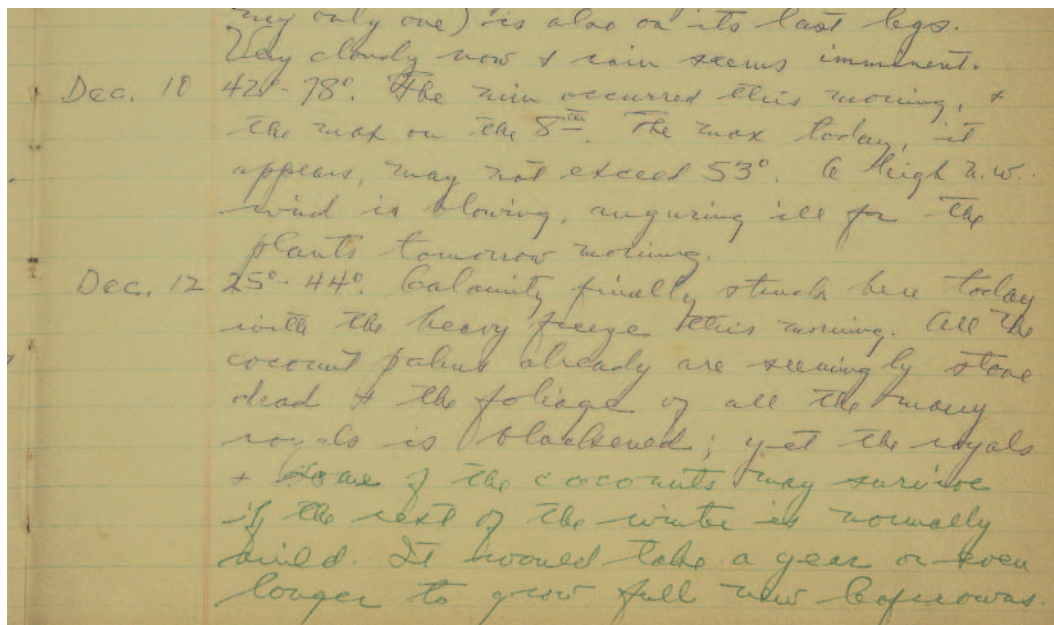 my only one) is also on its last legs.
Very cloudy now & rain seems imminent.
Dec. 10 42°-78°. The min occurred this morning, &
the max on the 8th. The max today, it
appears, may not exceed 53°. A high n.w.
wind is blowing, auguring ill for the
plants tomorrow morning.
Dec. 12 25°-44°. Calamity finally struck here today
with the heavy freeze this morning. All the
coconut palms already are seemingly stone
dead & the foliage of all the many
royals is blackened; yet the royals
& some of the coconuts may survive
if the rest of the winter is normally
mild. It would take a year or even
longer to grow full new leafcrowns.